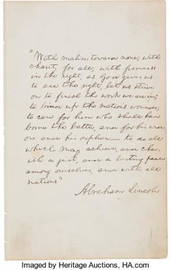 "With malice toward none, with
charity for all, with firmness
in the right, as God gives us
to see the right, let us strive
on to finish the work we are in
to bind up the nation's wounds,
to care for him who shall have
borne the battle, and for his widow
and his orphan – to do all
which may achieve and cher-
ish a just, and a lasting peace
among ourselves, and with all
nations"
Abraham Lincoln
Image by Heritage Auctions, HA.com